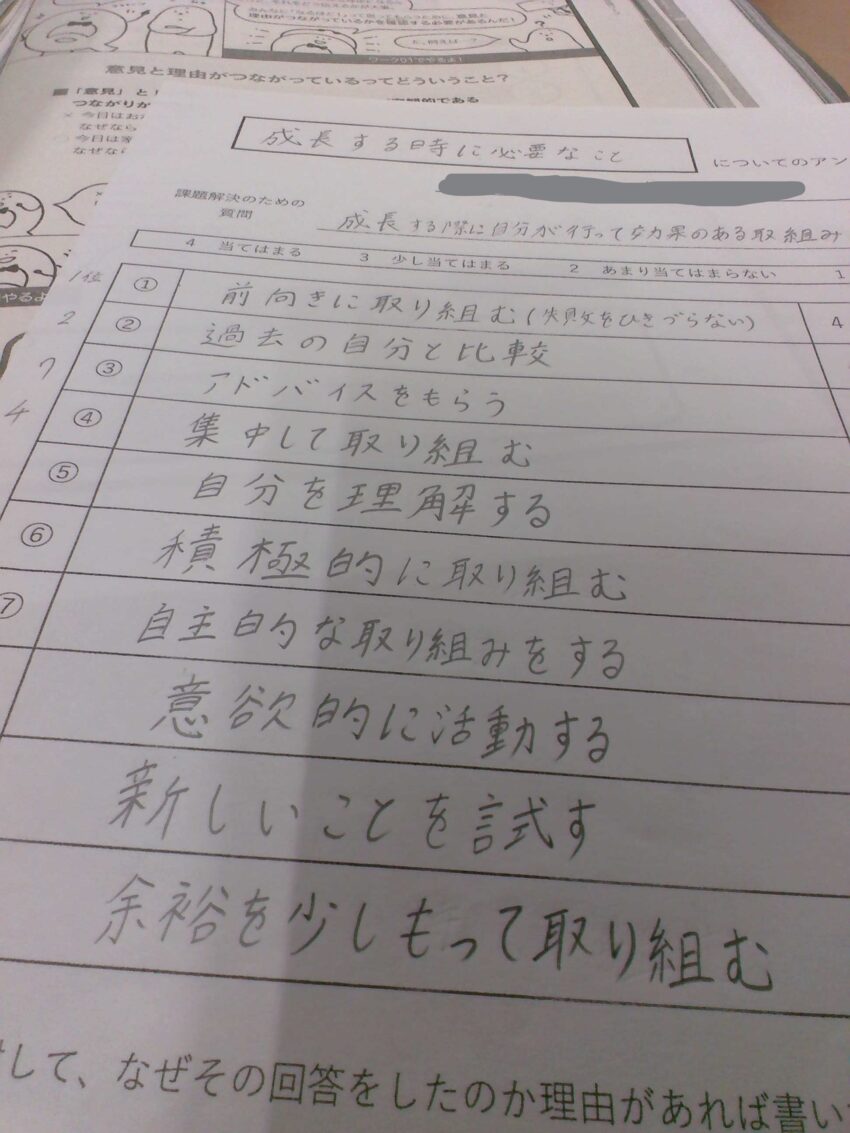 理由がつながっているかを確認する必要があるんだ!
ワーク01でやるよ!
意見と理由がつながっているってどういうこと?
■「意見」と
つながりか
× 今日はお
なぜなら
今日は
なぜな
やるよ
成長する時に必要なこと
についてのアン
課題解決のための
質問
成長する際に自分が行って効果のある取組み
4 当てはまる 3 少し当てはまる 2 あまり当てはまらない 1
1位 ① 前向きに取り組む(失敗をひきづらない) 4
2 ② 過去の自分と比較
7 ③ アドバイスをもらう
4 ④ 集中して取り組む
⑤ 自分を理解する
⑥ 積極的に取り組む
⑦ 自主的な取り組みをする
意欲的に活動する
新しいことを試す
余裕を少しもって取り組む
して、なぜその回答をしたのか理由があれば書い